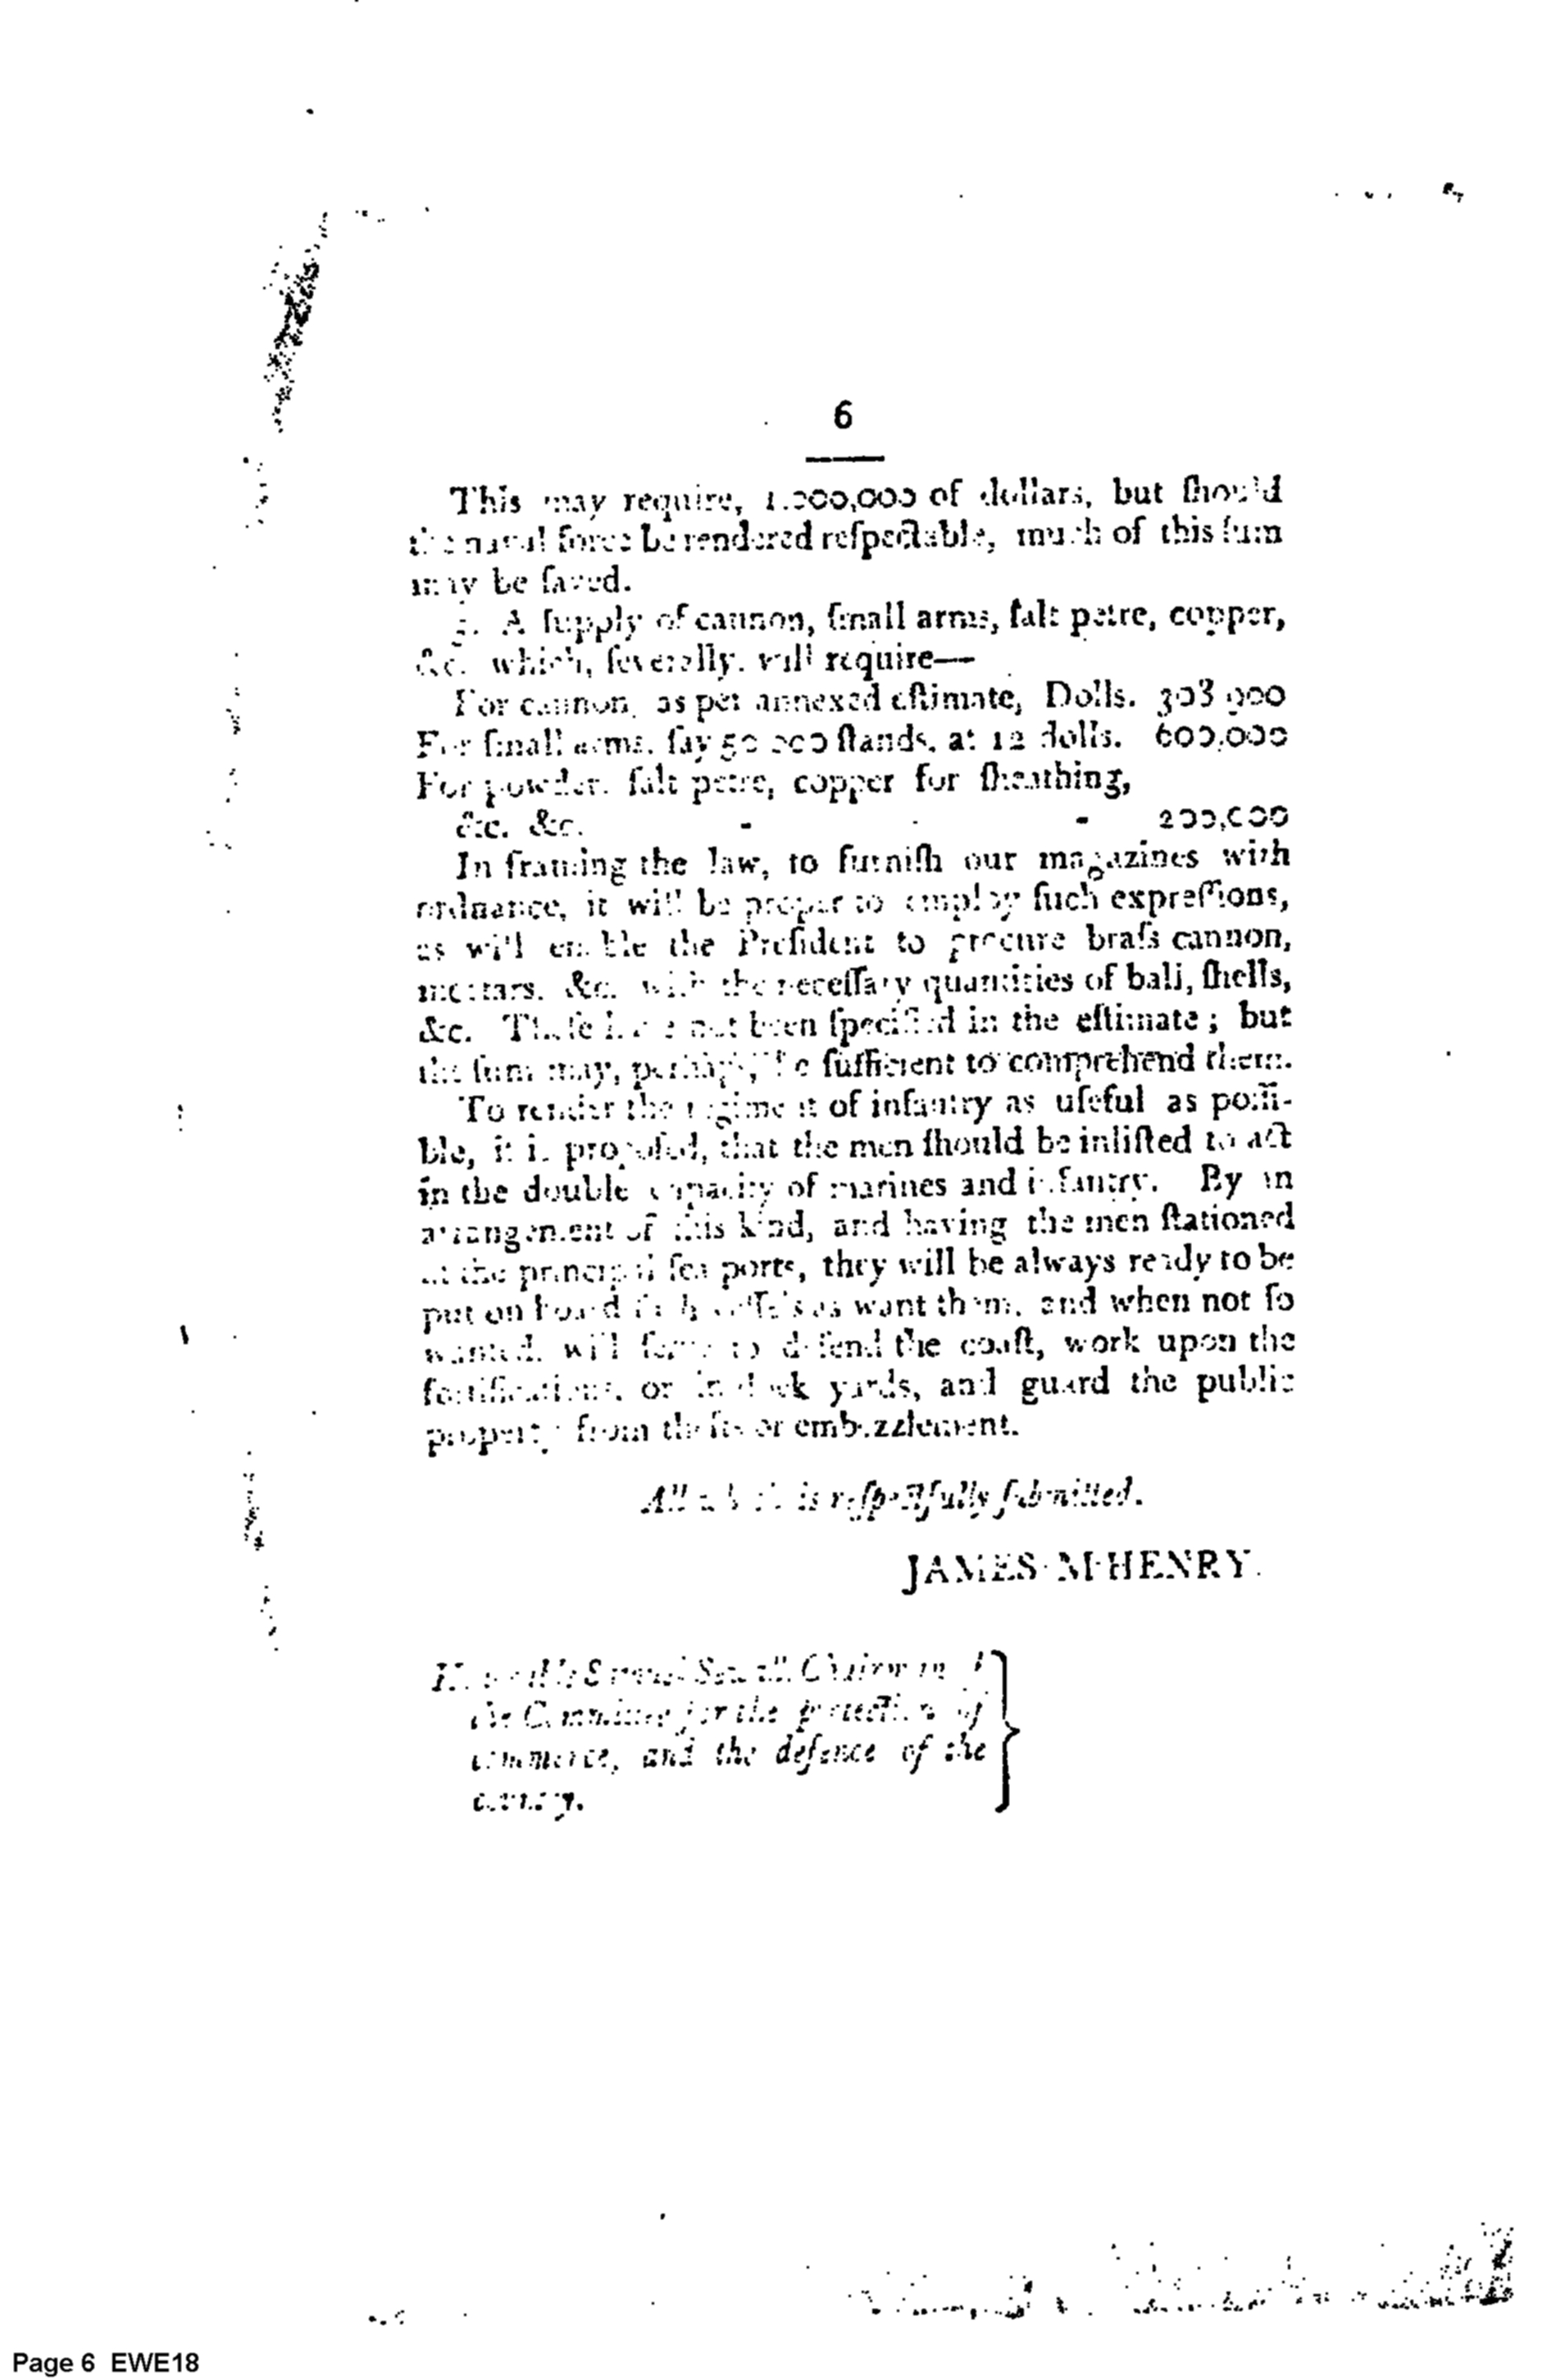 6
This may require, 1.000,000 of dollars, but ſhould
the naval force be rendered reſpectable, much of this ſum
may be ſaved.
A ſupply of cannon, ſmall arms, ſalt petre, copper,
&c. which, ſeverally. will require—
For cannon, as per annexed eſtimate, Dolls. 303 900
For ſmall arms. ſay 50 000 ſtands. at 12 dolls. 600,000
For powder. ſalt petre, copper for ſheathing,
&c. &c. - - 200,000
In framing the law, to furniſh our magazines with
ordnance, it will be proper to employ ſuch expreſſions,
as will enable the Preſident to procure braſs cannon,
mortars. &c. with the neceſſary quantities of ball, ſhells,
&c. Theſe have not been ſpecified in the eſtimate; but
the ſum may, perhaps, be ſufficient to comprehend them.
To render the regiment of infantry as uſeful as poſſi-
ble, it is propoſed, that the men ſhould be inliſted to act
in the double capacity of marines and infantry. By an
arrangement of this kind, and having the men ſtationed
at the principal ſea ports, they will be always ready to be
put on board ſuch veſſels as want them, and when not ſo
wanted. will ſerve to defend the coaſt, work upon the
fortifications, or in dock yards, and guard the public
property from thefts or embezzlement.
All which is reſpectfully ſubmitted.
JAMES M·HENRY.
Samuel Sewall, Chairman
the Committee for the protection of
commerce, and the defence of the
country.
Page 6 EWE18